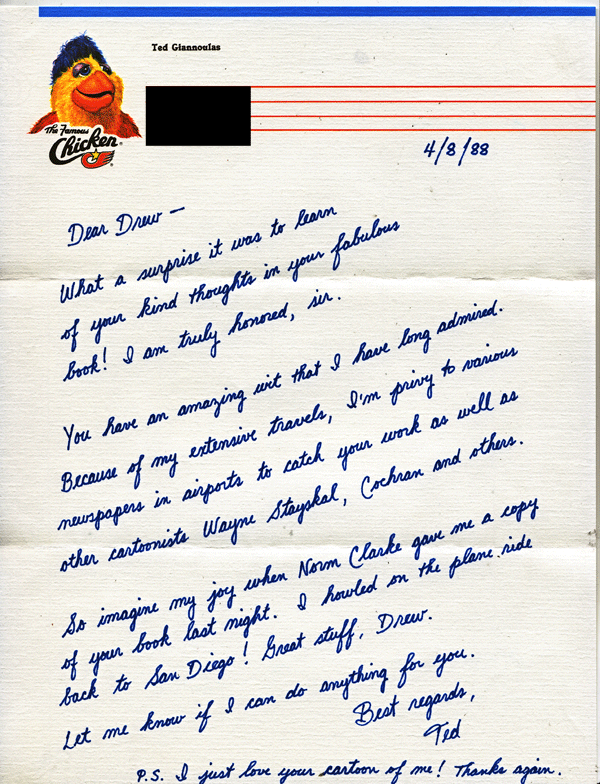 Ted Giannoulas
The Famous
Chicken®
4/8/88
Dear Drew —
What a surprise it was to learn
of your kind thoughts in your fabulous
book! I am truly honored, sir.
You have an amazing wit that I have long admired.
Because of my extensive travels, I'm privy to various
newspapers in airports to catch your work as well as
other cartoonists Wayne Stayskal, Cochran and others.
So imagine my joy when Norm Clarke gave me a copy
of your book last night. I howled on the plane ride
back to San Diego! Great stuff, Drew.
Let me know if I can do anything for you.
Best regards,
Ted
P.S. I just love your cartoon of me! Thanks again.